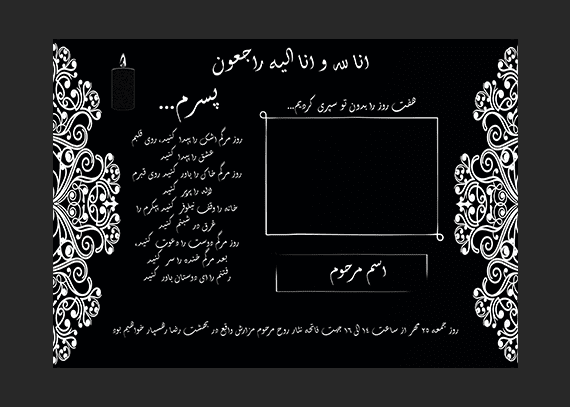 انا لله و انا الیه راجعون
هفت روز را بدون تو سپری کردیم...
پسرم...
روز مرگم اشک را پیدا کنید، روی قلبم
عشق را پیدا کنید
روز مرگم خاک را باور کنید روی قبرم
لاله را پرپر کنید
خانه را وقف نیلوفر کنید پیکرم را
غرق در شبنم کنید
روز مرگم دوست را دعوت کنید،
بعد مرگم خنده را سر کنید
رفتنم را ای دوستان باور کنید
اسم مرحوم
روز جمعه ۲۵ مهر از ساعت ۱۴ الی ۱۶ جهت فاتحه نثار روح مرحوم مزارش واقع در بهشت رضا رهسپار خواهیم بود